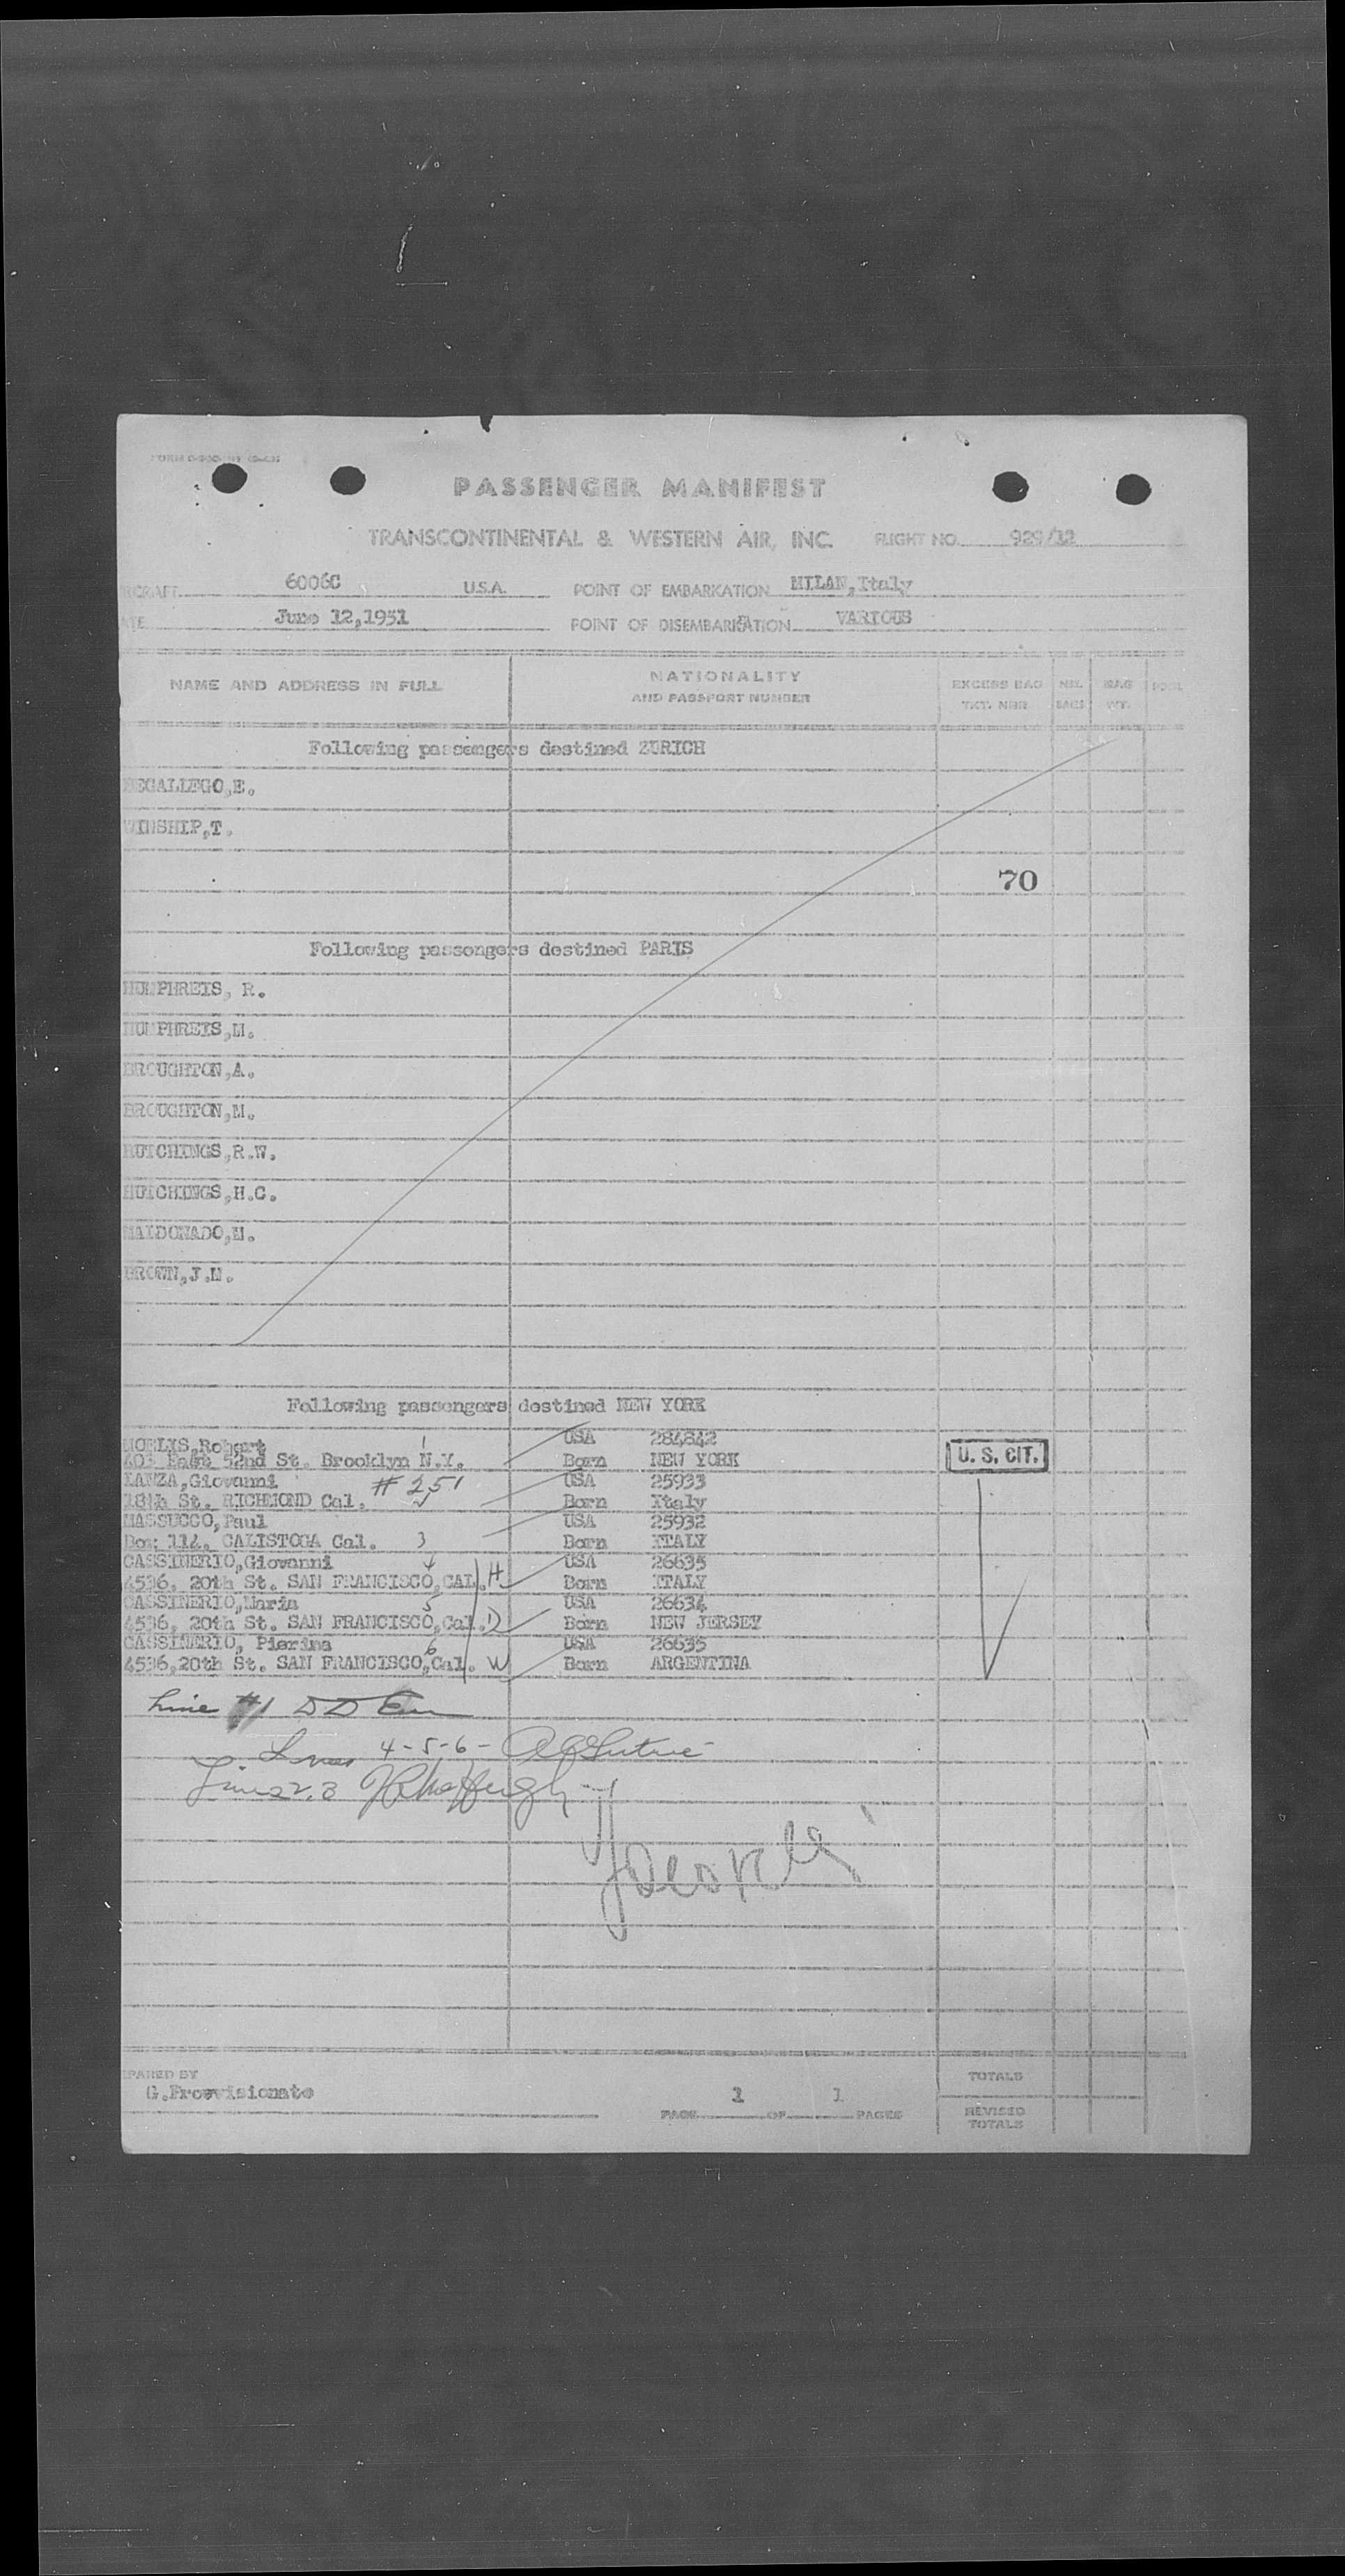 PASSENGER MANIFEST
TRANSCONTINENTAL & WESTERN AIR, INC. FLIGHT NO. 929/12
6006C U.S.A. POINT OF EMBARKATION MILAN, Italy
June 12,1951 POINT OF DISEMBARKATION VARIOUS
NAME AND ADDRESS IN FULL NATIONALITY AND PASSPORT NUMBER EXCESS BAG TKT. NBR NBR. BAGS BAG WT.
Following passengers destined ZURICH
DEGALLEGO,E.
WINSHIP,T.
70
Following passengers destined PARIS
HUMPHREIS, R.
HUMPHREIS,M.
BROUGHTON,A.
BROUGHTON,M.
HUTCHINGS,R.W.
HUTCHINGS,H.C.
MALDONADO,M.
BROWN,J.M.
Following passengers destined NEW YORK
Robert 1 USA 284842
East 52nd St. Brooklyn N.Y. Born NEW YORK U. S. CIT.
LANZA,Giovanni # 251 USA 25933
18th St. RICHMOND Cal. Born Italy
MASSUCCO,Paul USA 25932
Box 114, CALISTOGA Cal. 3 Born ITALY
CASSINERIO,Giovanni 4 USA 26635
4536, 20th St. SAN FRANCISCO,CAL. H Born ITALY
CASSINERIO,Maria 5 USA 26634
4536, 20th St. SAN FRANCISCO,Cal. D Born NEW JERSEY
CASSINERIO, Pierina 6 USA 26635
4536,20th St. SAN FRANCISCO,Cal. W Born ARGENTINA
Line #1
Lines 4-5-6-
Lines 2,3
PREPARED BY TOTALS
G.Provvisionato
PAGE 1 OF 1 PAGES REVISED TOTALS